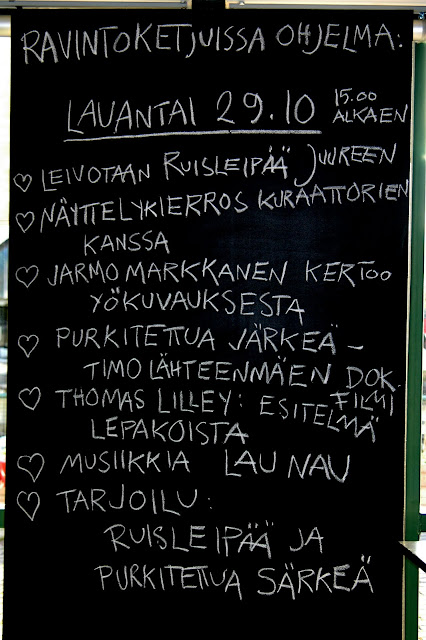 RAVINTOKETJUISSA OHJELMA:
LAUANTAI 29.10 15.00 ALKAEN
♡ LEIVOTAAN RUISLEIPÄÄ JUUREEN
♡ NÄYTTELYKIERROS KURAATTORIEN
KANSSA
♡ JARMO MARKKANEN KERTOO
YÖKUVAUKSESTA
♡ PURKITETTUA JÄRKEÄ –
TIMO LÄHTEENMÄEN DOK.
FILMI
♡ THOMAS LILLEY: ESITELMÄ
LEPAKOISTA
♡ MUSIIKKIA LAU NAU
♡ TARJOILU:
RUISLEIPÄÄ JA
PURKITETTUA SÄRKEÄ